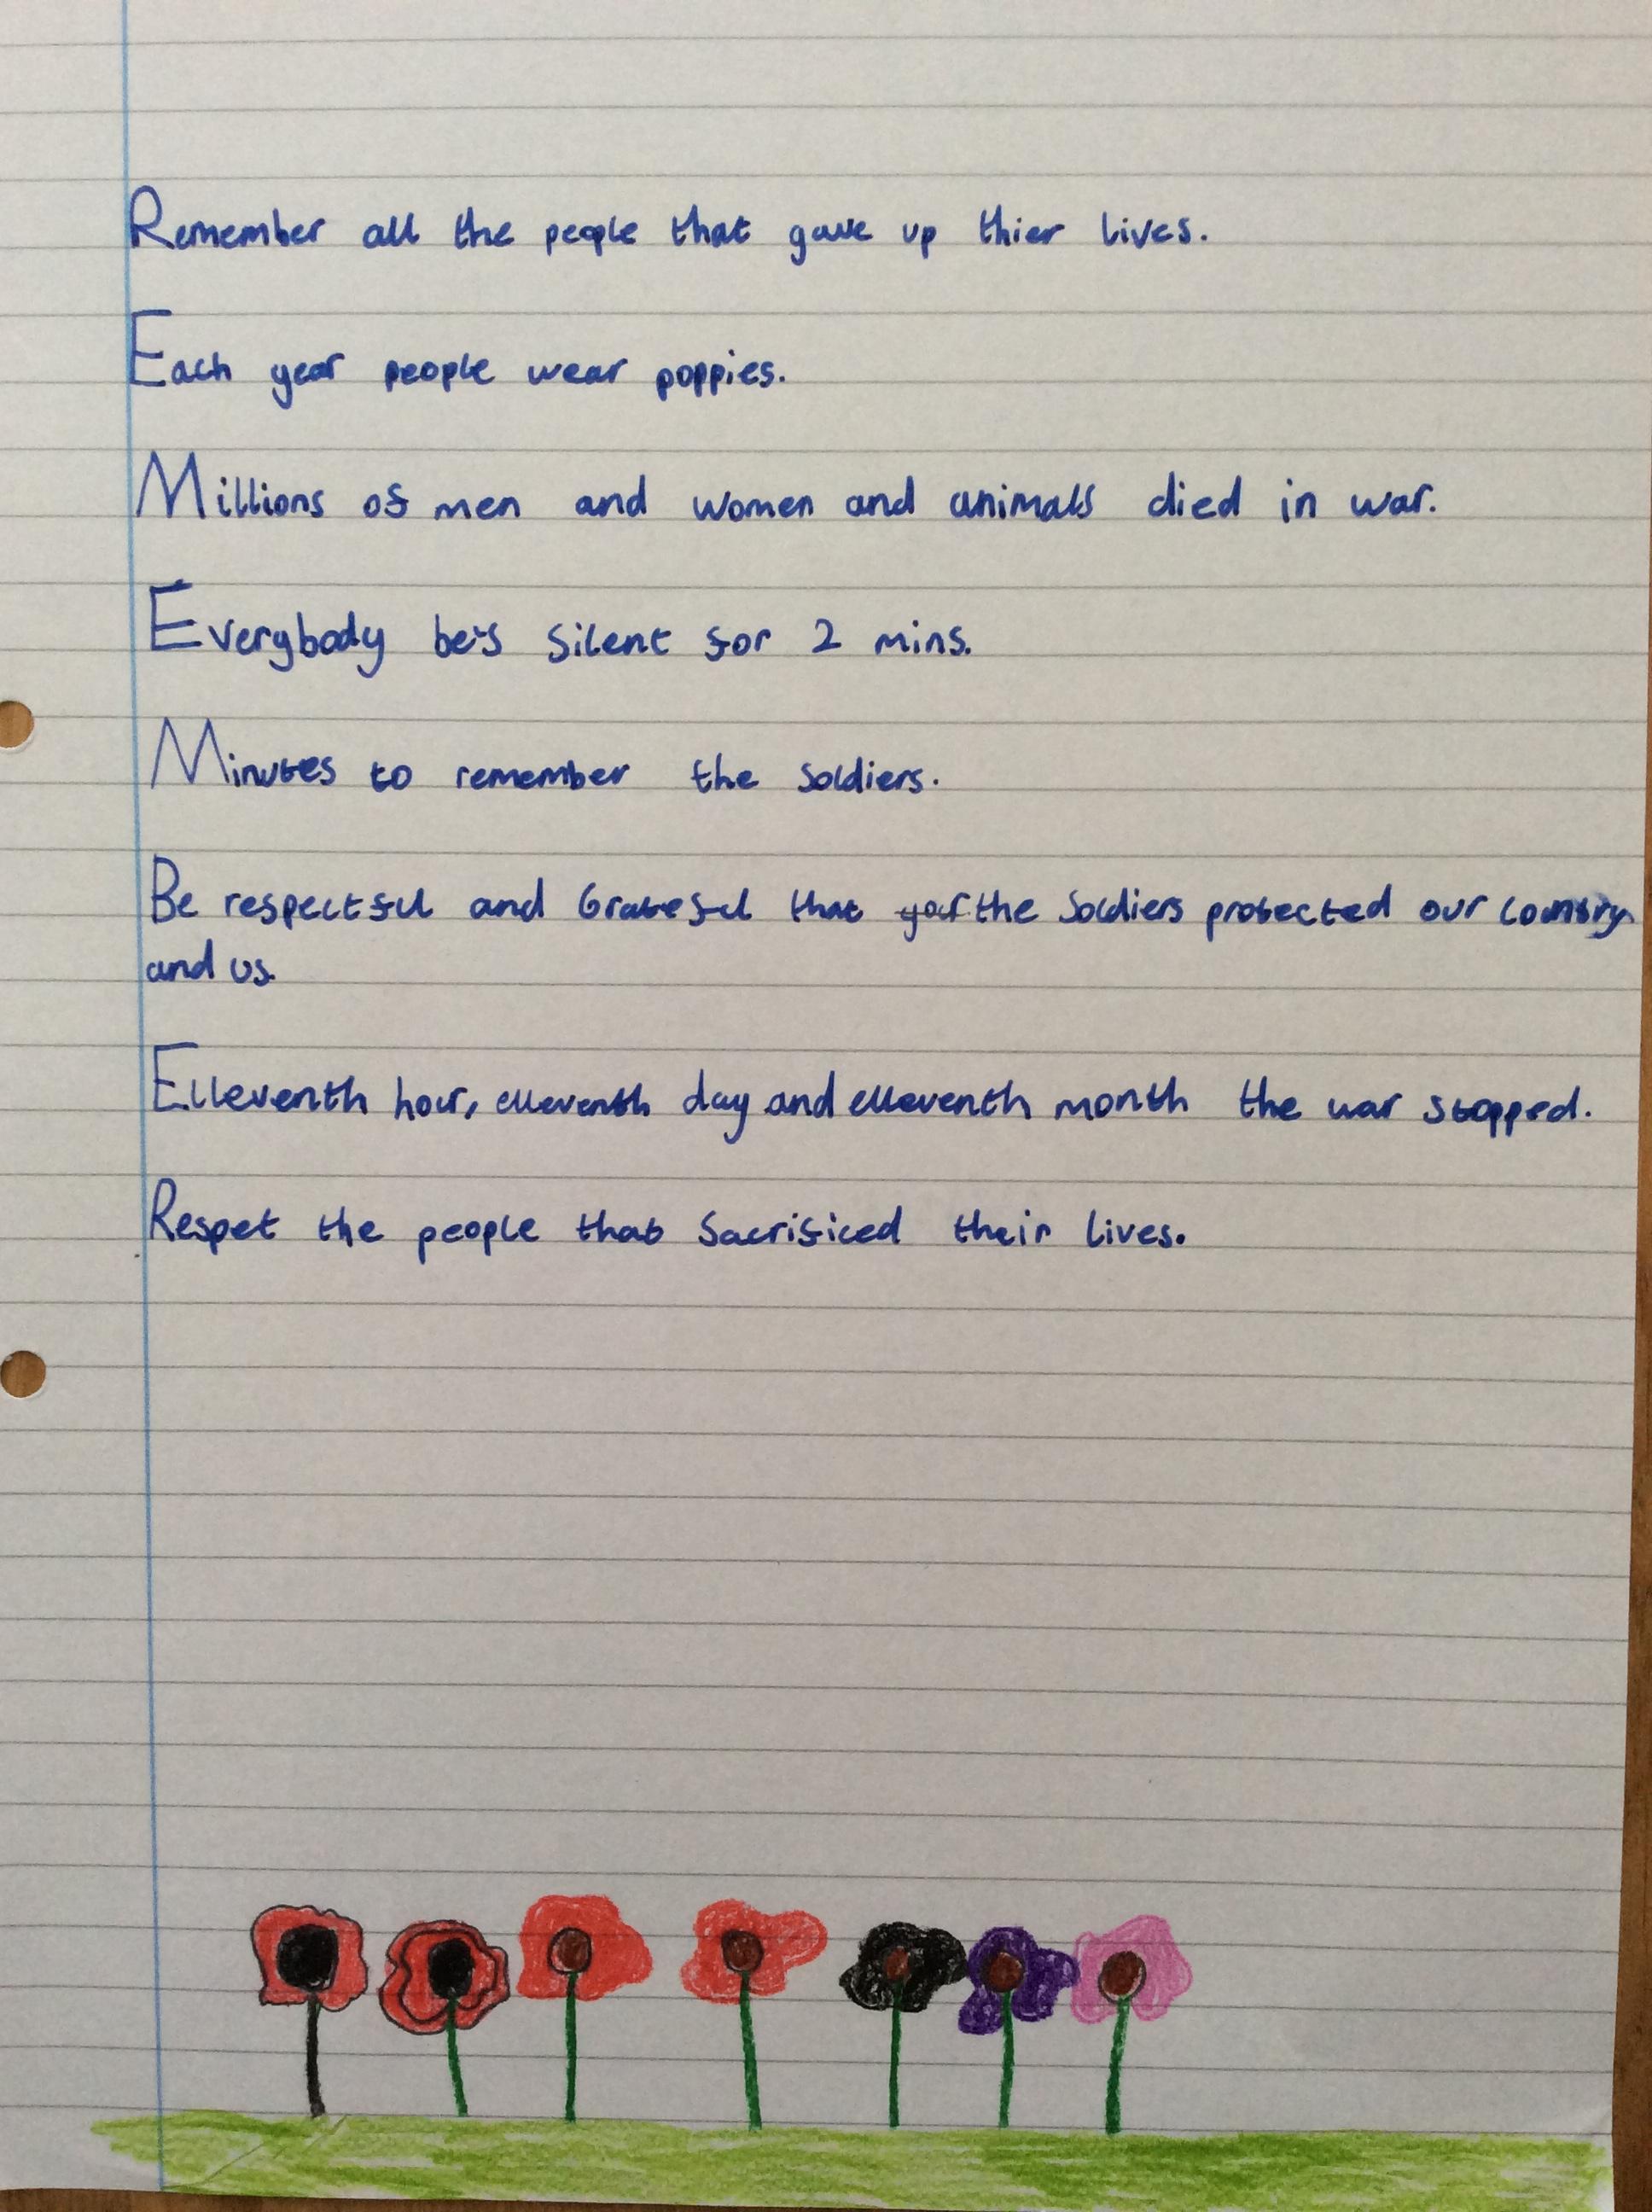 Remember all the people that gave up thier lives.
Each year people wear poppies.
Millions of men and women and animals died in war.
Everybody be's silent for 2 mins.
Minutes to remember the soldiers.
Be respectful and Grateful that the soldiers protected our country
and us.
Elleventh hour, elleventh day and elleventh month the war stopped.
Respet the people that sacrificed their lives.